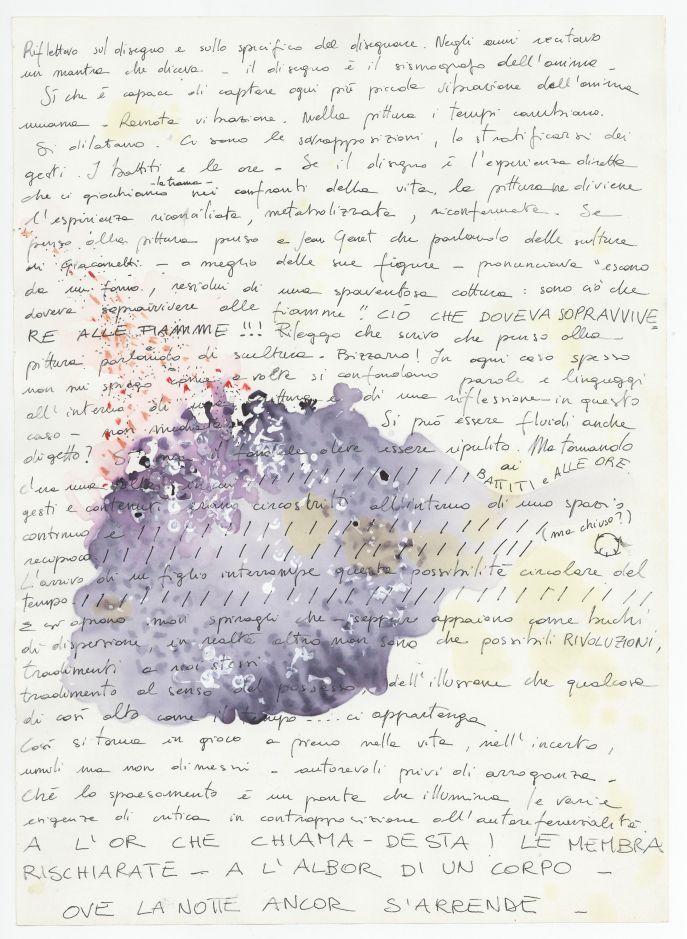 Riflettevo sul disegno e sullo specifico del disegnare. Negli anni recitavo
un mantra che diceva - il disegno è il sismografo dell'anima -
Sì che è capace di captare ogni più piccola vibrazione dell'anima
umana - Remota vibrazione. Nella pittura i tempi cambiano.
Si dilatano. Ci sono le sovrapposizioni, lo stratificarsi dei
gesti. I battiti e le ore - Se il disegno è l'esperienza diretta
che ci giochiamo -la trama- nei confronti della vita, la pittura ne diviene
l'esperienza riconciliata, metabolizzata, riconfermata. Se
penso alla pittura penso a Jean Genet che parlando delle sculture
di Giacometti - o meglio delle sue figure - pronunciava "escono
da un forno, residui di una spaventosa cottura: sono ciò che
doveva sopravvivere alle fiamme" CIÒ CHE DOVEVA SOPRAVVIVE=
RE ALLE FIAMME !!! Rileggo che scrivo che penso alla
pittura parlando di scultura. Bizzarro! In ogni caso spesso
non mi spiego come a volte si confondano parole e linguaggi
all'interno di una e di una riflessione - in questo
caso - non Si può essere fluidi anche
di getto? deve essere ripulito. Ma tornando
ai BATTITI e ALLE ORE
c'era una
gesti e contenuti erano circoscritti all'interno di uno spazio
continuo e / / / / / / / / / / / / / / / / (ma chiuso?)
reciproco / / / / / / / / / / / / / / / /
L'arrivo di un figlio interrompe questa possibilità circolare del
tempo / / / / / / / / / / / / / / / / / / / / / /
E si aprono nuovi spiragli che - seppure appaiono come buchi
di dispersione, in realtà altro non sono che possibili RIVOLUZIONI,
tradimenti a noi stessi
tradimento al senso del possesso, dell'illusione che qualcosa
di così alto come il tempo ..... ci appartenga
Così si torna in gioco a pieno nella vita, nell'incerto,
umili ma non dimessi - autorevoli privi di arroganza -
Ché lo spaesamento è un ponte che illumina le varie
esigenze di critica in contrapposizione all'autoreferenzialità.
A L'OR CHE CHIAMA - DESTA ! LE MEMBRA
RISCHIARATE - A L'ALBOR DI UN CORPO -
OVE LA NOTTE ANCOR S'ARRENDE -